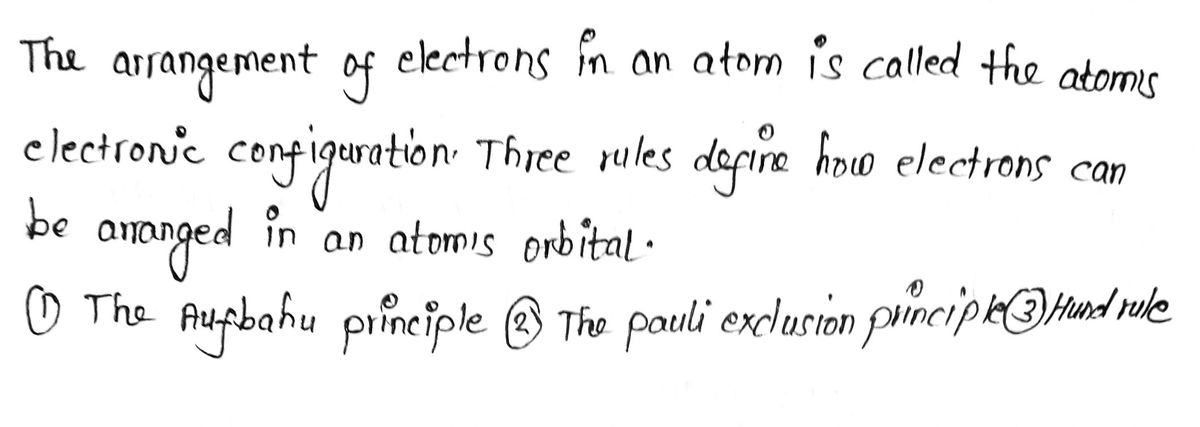 The arrangement of electrons in an atom is called the atom's
electronic configuration. Three rules define how electrons can
be arranged in an atom's orbital.
① The Aufbahu principle ② The pauli exclusion principle ③ Hund rule